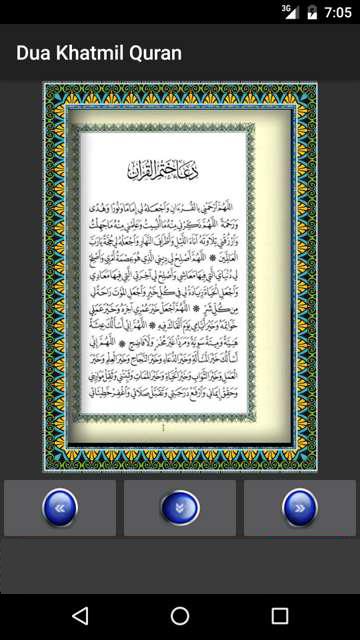 3G
7:05
Dua Khatmil Quran
دعاء ختم القرآن
اللَّهُمَّ ارْحَمْنِي بِالْقُرْءَانِ وَاجْعَلْهُ لِي إِمَامًا وَنُورًا وَهُدًى
وَرَحْمَةً اللَّهُمَّ ذَكِّرْنِي مِنْهُ مَا نُسِّيتُ وَعَلِّمْنِي مِنْهُ مَا جَهِلْتُ
وَارْزُقْنِي تِلَاوَتَهُ آنَاءَ اللَّيْلِ وَأَطْرَافَ النَّهَارِ وَاجْعَلْهُ لِي حُجَّةً يَا رَبَّ
الْعَالَمِينَ * اللَّهُمَّ أَصْلِحْ لِي دِينِي الَّذِي هُوَ عِصْمَةُ أَمْرِي وَأَصْلِحْ
لِي دُنْيَايَ الَّتِي فِيهَا مَعَاشِي وَأَصْلِحْ لِي آخِرَتِي الَّتِي فِيهَا مَعَادِي
وَاجْعَلِ الْحَيَاةَ زِيَادَةً لِي فِي كُلِّ خَيْرٍ وَاجْعَلِ الْمَوْتَ رَاحَةً لِي
مِنْ كُلِّ شَرٍّ * اللَّهُمَّ اجْعَلْ خَيْرَ عُمْرِي آخِرَهُ وَخَيْرَ عَمَلِي
خَوَاتِمَهُ وَخَيْرَ أَيَّامِي يَوْمَ أَلْقَاكَ فِيهِ * اللَّهُمَّ إِنِّي أَسْأَلُكَ عِيشَةً
هَنِيَّةً وَمِيتَةً سَوِيَّةً وَمَرَدًّا غَيْرَ مُخْزٍ وَلَا فَاضِحٍ * اللَّهُمَّ إِنِّي
أَسْأَلُكَ خَيْرَ الْمَسْأَلَةِ وَخَيْرَ الدُّعَاءِ وَخَيْرَ النَّجَاحِ وَخَيْرَ الْعِلْمِ وَخَيْرَ
الْعَمَلِ وَخَيْرَ الثَّوَابِ وَخَيْرَ الْحَيَاةِ وَخَيْرَ الْمَمَاتِ وَثَبِّتْنِي وَثَقِّلْ مَوَازِينِي
وَحَقِّقْ إِيمَانِي وَارْفَعْ دَرَجَتِي وَتَقَبَّلْ صَلَاتِي وَاغْفِرْ خَطِيئَاتِي